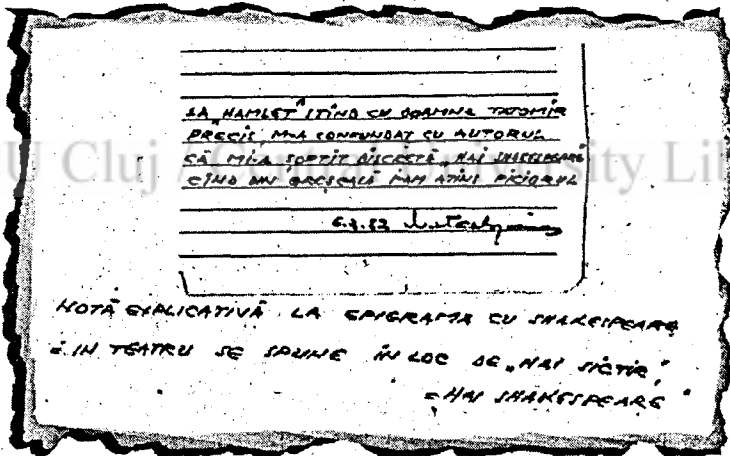 LA „HAMLET” STÎND CU DOAMNA TATOMIR
PRECIS M-A CONFUNDAT CU AUTORUL
CĂ MI-A ȘOPTIT DISCRETĂ „HAI SHAKESPEARE
CÎND DIN GREȘEALĂ I-AM ATINS PICIORUL
U Cluj / Central University Lib
NOTĂ EXPLICATIVĂ LA EPIGRAMA CU SHAKESPEARE
= IN TEATRU SE SPUNE ÎN LOC DE „HAI SICTIR”
= HAI SHAKESPEARE